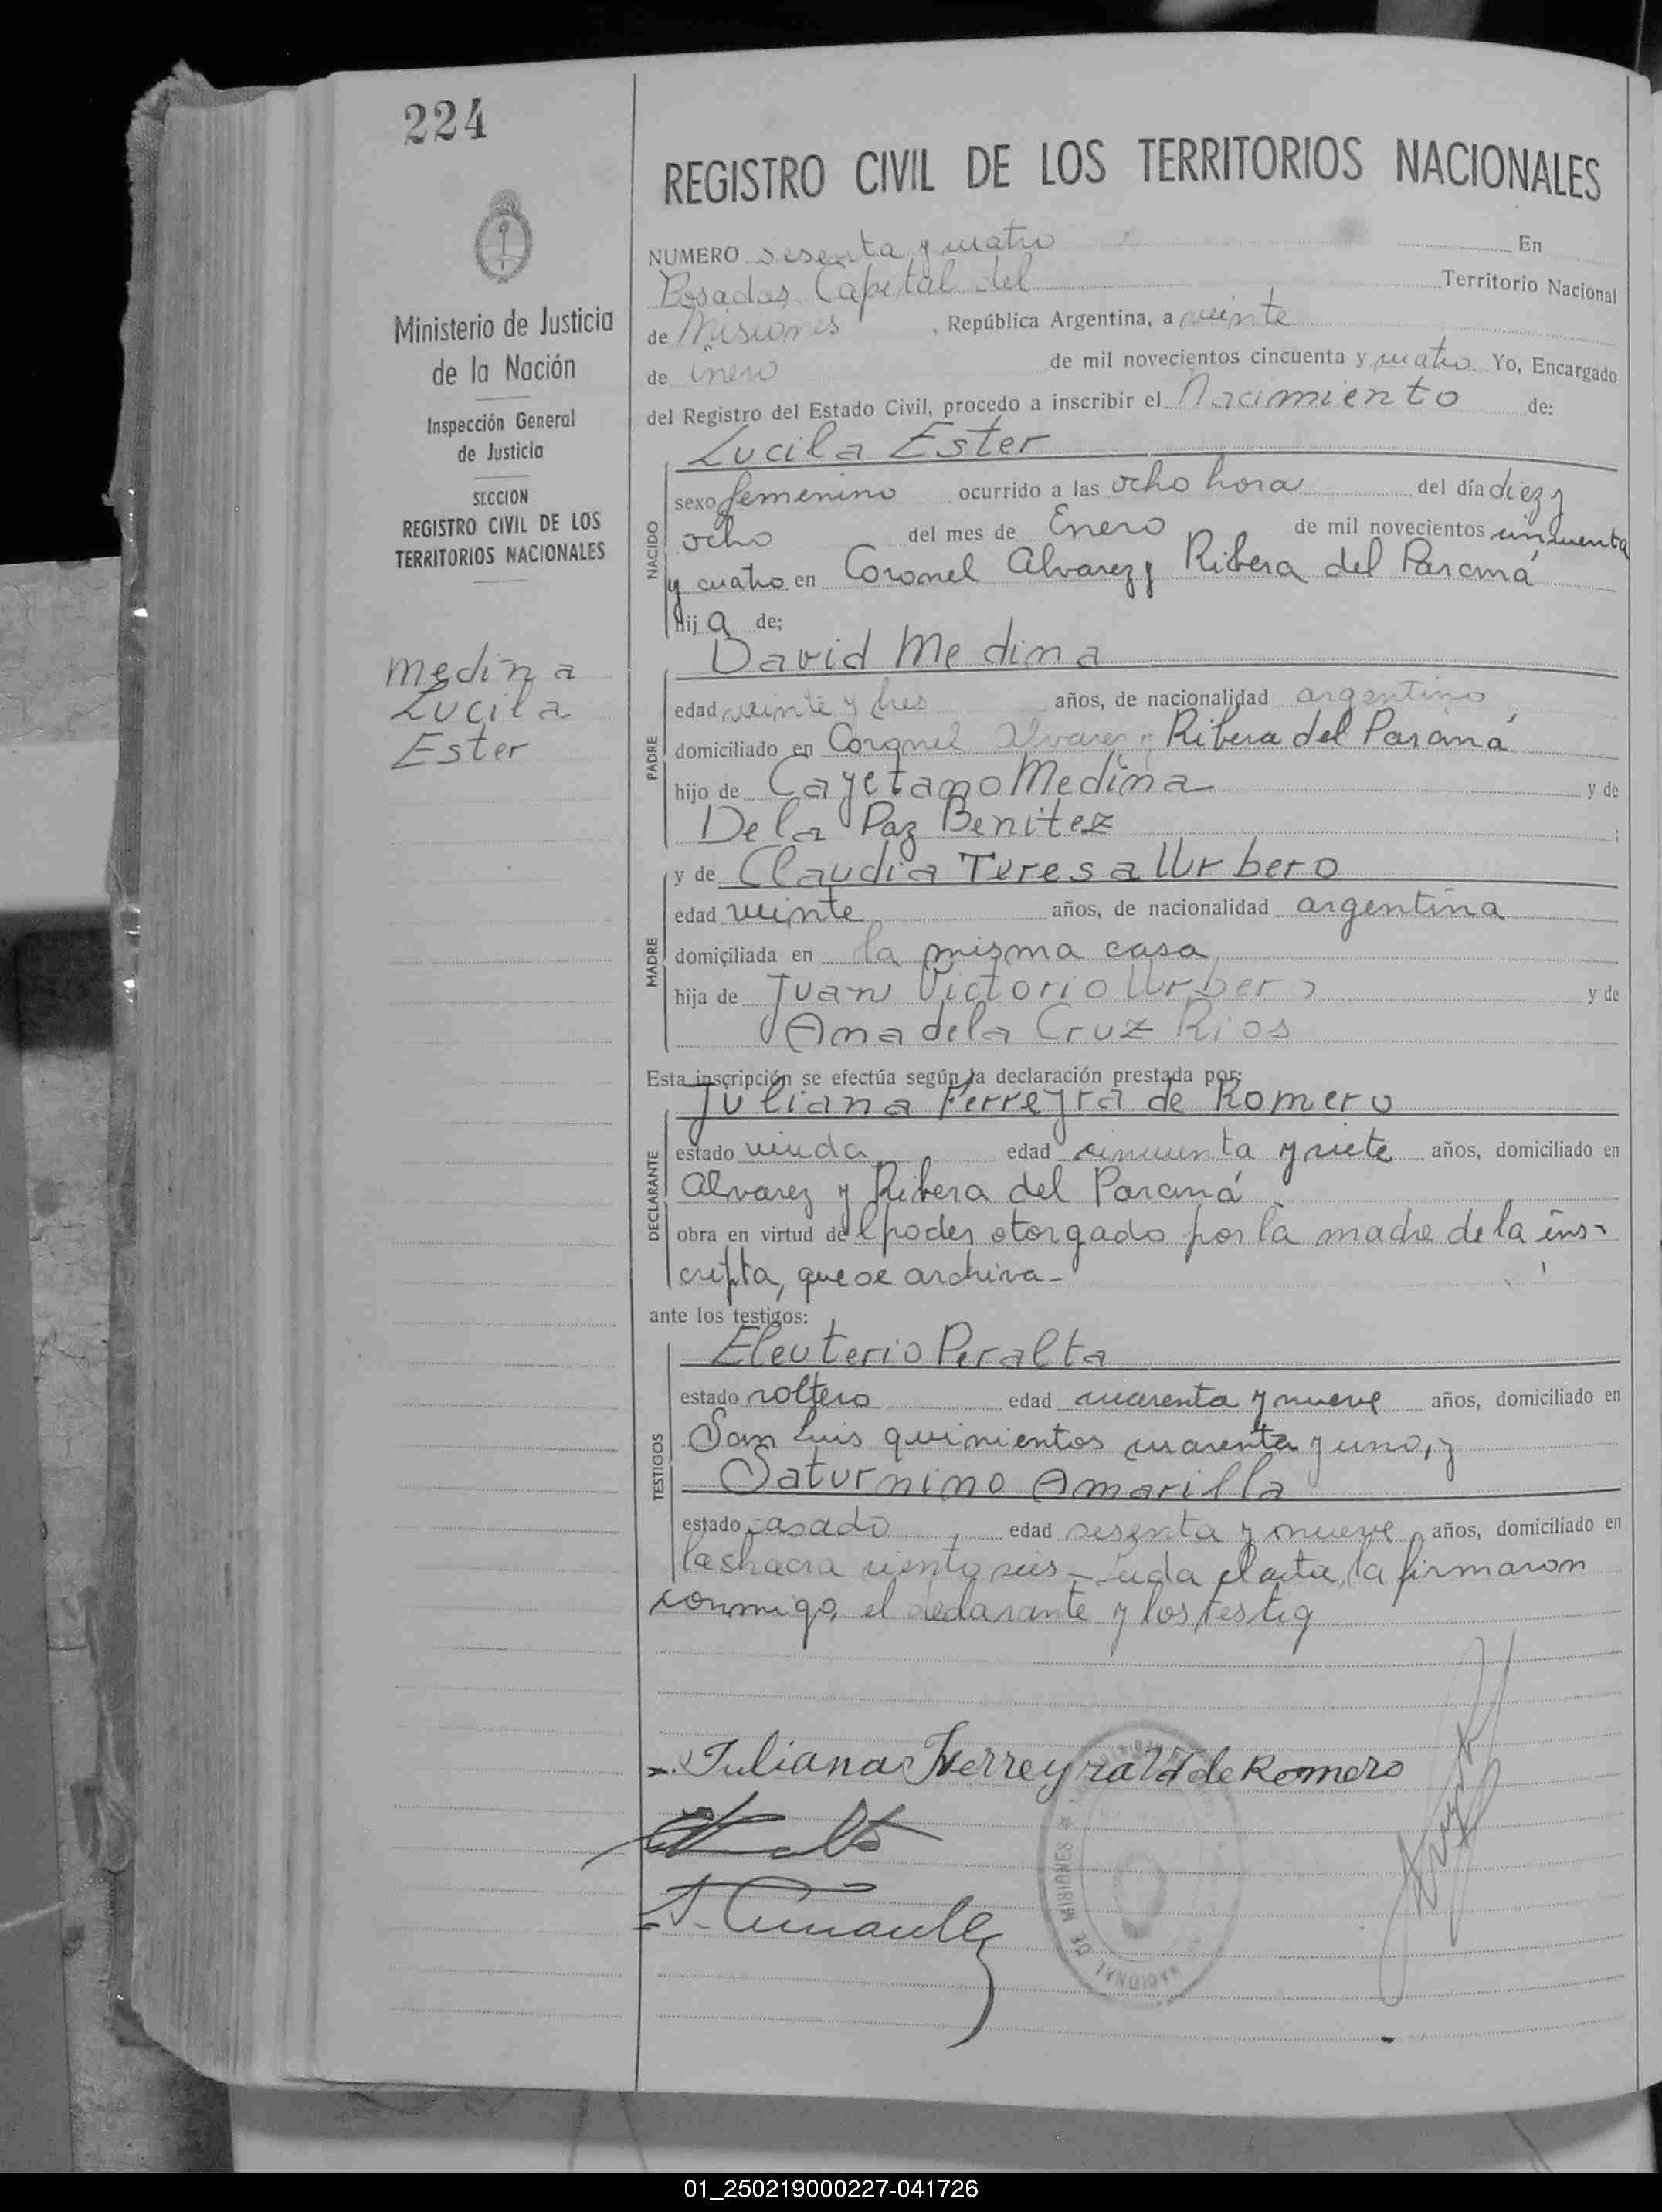 224
REGISTRO CIVIL DE LOS TERRITORIOS NACIONALES
Ministerio de Justicia
de la Nación
Inspección General
de Justicia
SECCION
REGISTRO CIVIL DE LOS
TERRITORIOS NACIONALES
Medina
Lucila
Ester
NUMERO sesenta y cuatro En
Posadas Capital del Territorio Nacional
de Misiones, República Argentina, a veinte
de enero de mil novecientos cincuenta y cuatro Yo, Encargado
del Registro del Estado Civil, procedo a inscribir el Nacimiento de:
NACIDO
Lucila Ester
sexo femenino ocurrido a las ocho hora del día diez y
ocho del mes de Enero de mil novecientos cincuenta
y cuatro en Coronel Alvarez y Ribera del Paraná
hij a de:
PADRE
David Medina
edad veinte y tres años, de nacionalidad argentino
domiciliado en Coronel Alvarez y Ribera del Paraná
hijo de Cayetano Medina y de
De la Paz Benitez ;
MADRE
y de Claudia Teresa Urbero
edad veinte años, de nacionalidad argentina
domiciliada en la misma casa
hija de Juan Victorio Urbero y de
Ana de la Cruz Rios
Esta inscripción se efectúa según la declaración prestada por:
DECLARANTE
Juliana Ferreyra de Romero
estado viuda edad cincuenta y siete años, domiciliado en
Alvarez y Ribera del Paraná
obra en virtud del poder otorgado por la madre de la ins-
cripta, que se archiva-
ante los testigos:
TESTIGOS
Eleuterio Peralta
estado soltero edad cuarenta y nueve años, domiciliado en
San Luis quinientos cuarenta y uno, y
Saturnino Amarilla
estado casado edad sesenta y nueve años, domiciliado en
la chacra ciento seis - Leida el acta, la firmaron
conmigo, el declarante y los testig
Juliana Ferreyra Vd de Romero
NACIONAL DE MISIONES
01_250219000227-041726